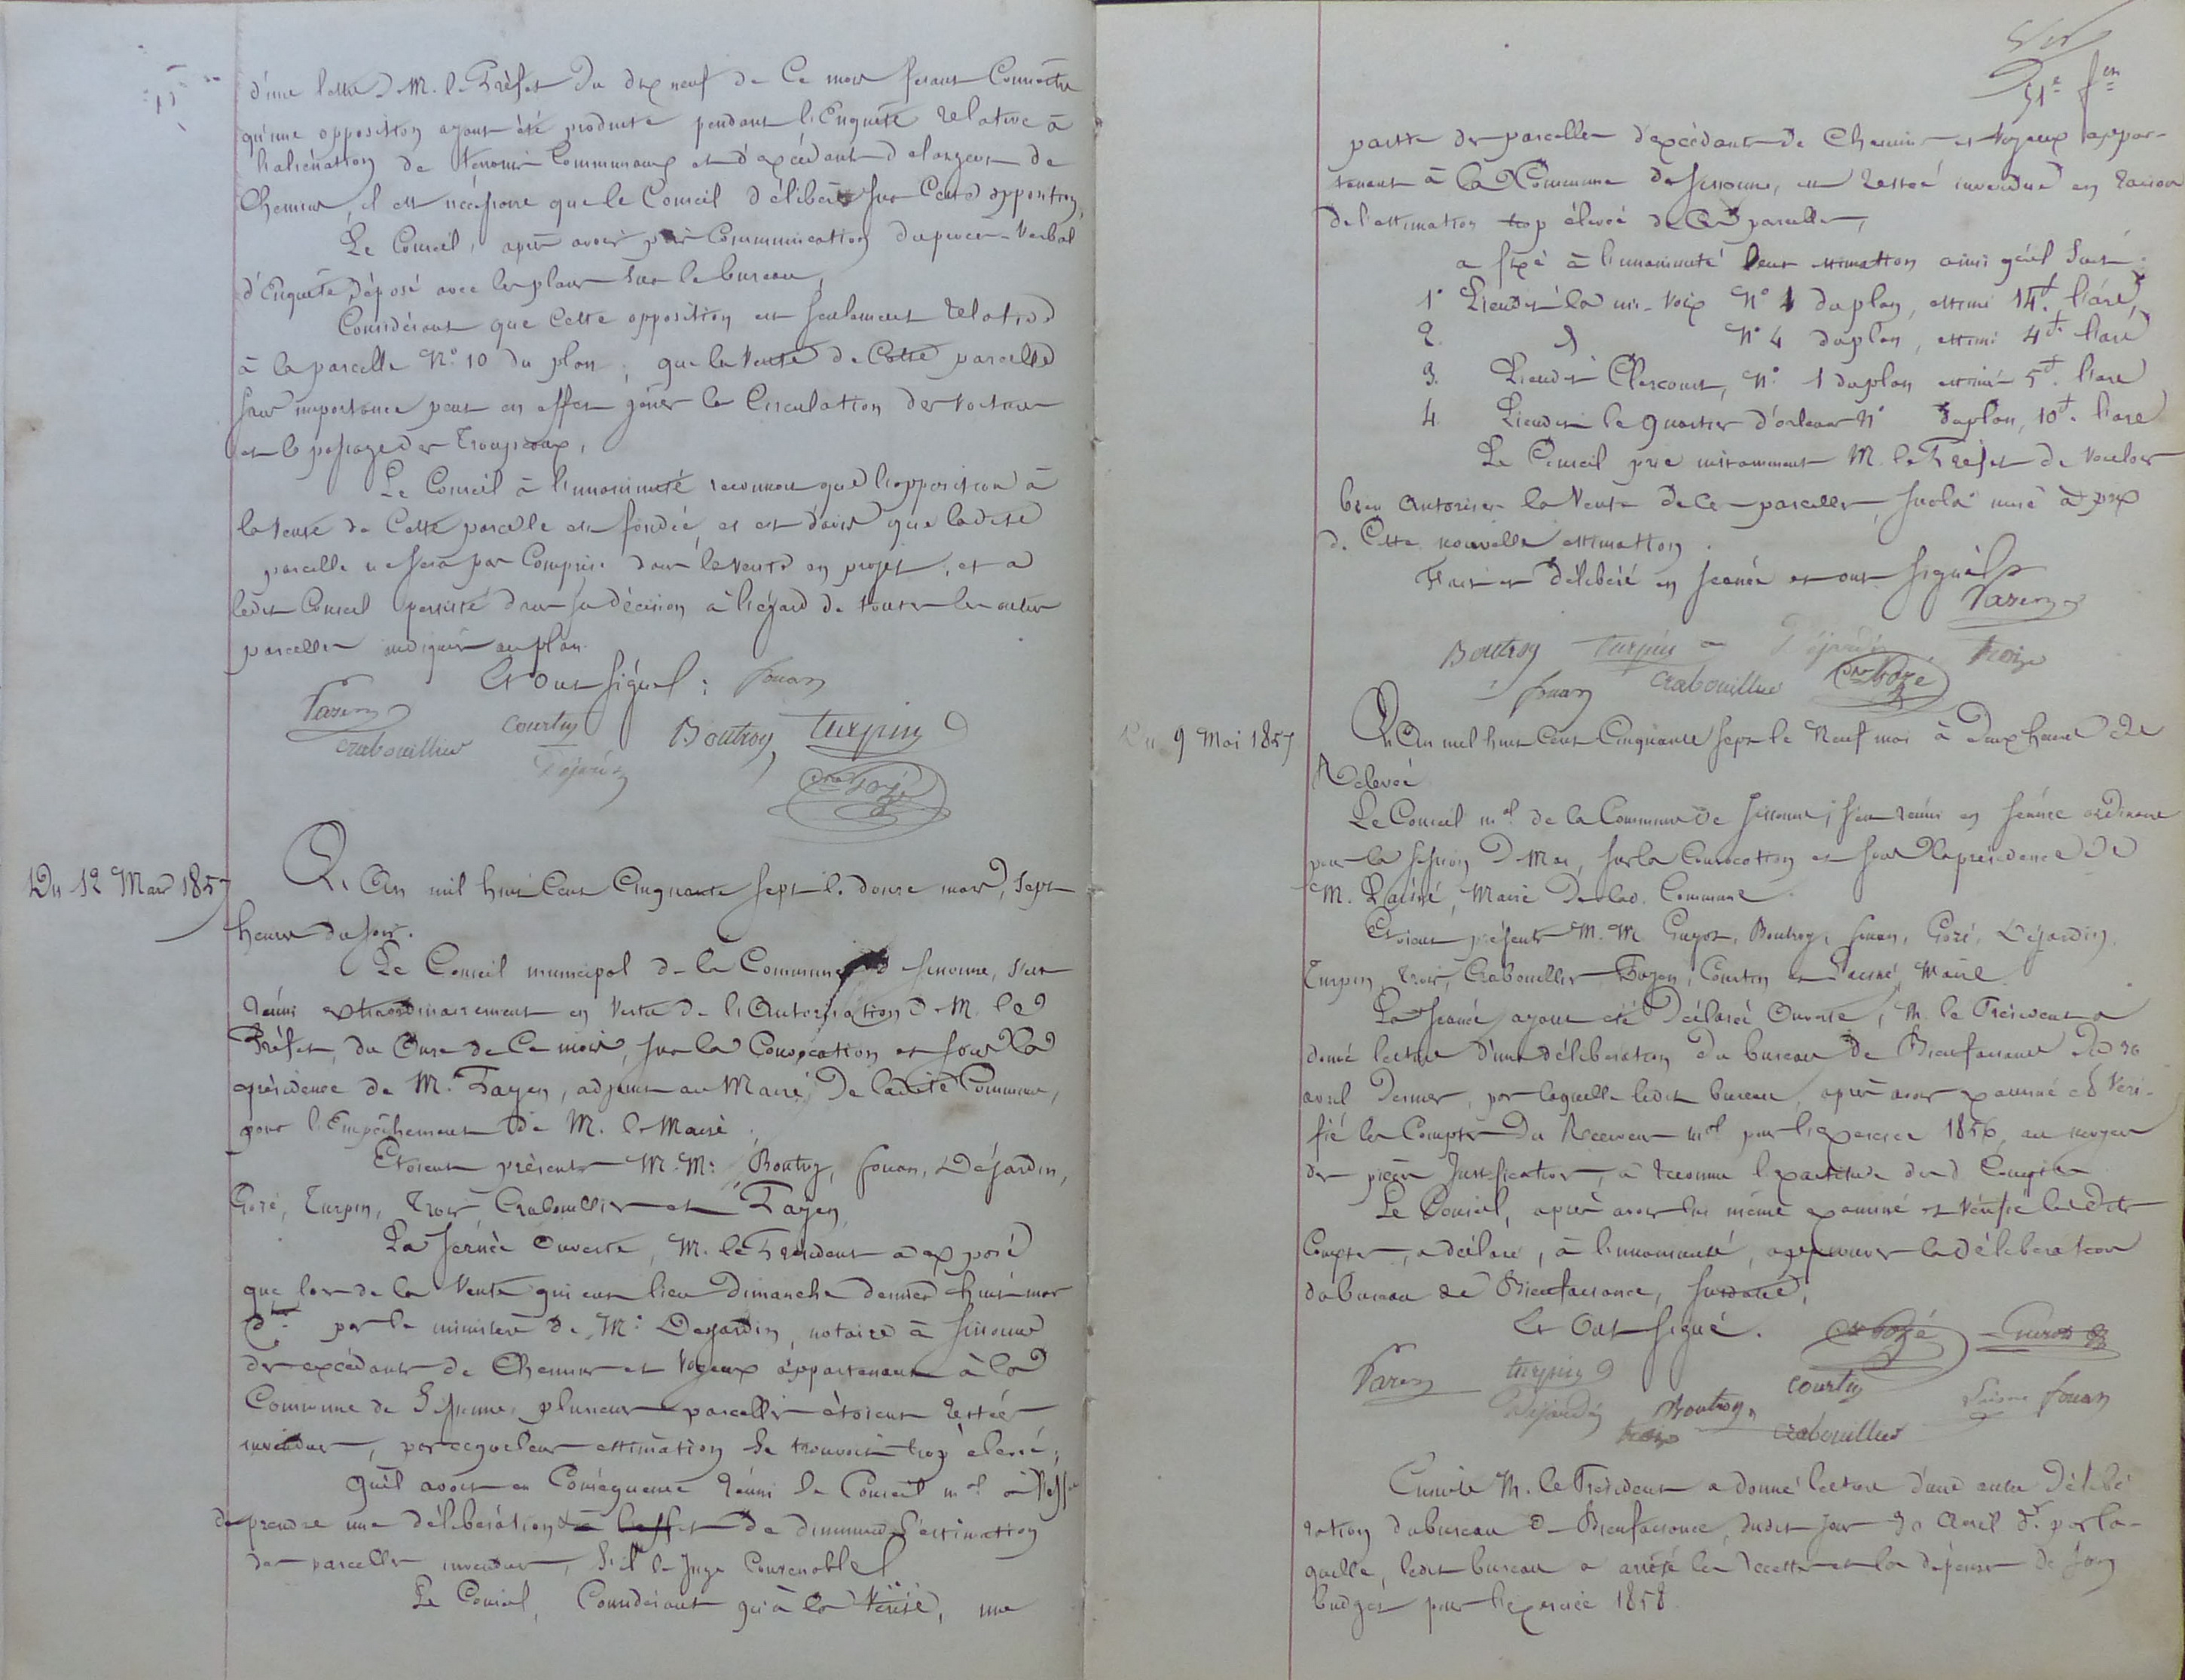 d'une lettre de M. le Préfet du dix neuf de ce mois faisant connaître
qu'une opposition ayant été produite pendant l'Enquête relative à
l'aliénation de terrains Communaux et d'excédant de largeur de
Chemins, il est nécessaire que le Conseil délibère sur Cette opposition,
Le Conseil, après avoir pris Communication du procès-Verbal
d'Enquête, déposé avec les plans sur le bureau,
Considérant que Cette opposition est seulement relative
à la parcelle N° 10 du plan, que la Vente de Cette parcelle
sans importance peut en effet gêner la Circulation des voitures
et le passage des troupeaux,
Le Conseil à l'unanimité reconnait que l'opposition à
la Vente de Cette parcelle est fondée, et est d'avis que ladite
parcelle ne sera pas Comprise dans la vente en projet, et a
ledit Conseil persisté dans sa décision à l'égard de toutes les autres
parcelles indiquées au plan.
Et Ont Signé : fouan
Crabouillier Courtin Boutroy turpin
Dejardin Gozé
Du 12 Mars 1857
L'An mil huit Cent Cinquante sept le douze mars, Sept
heures du soir.
Le Conseil municipal de la Commune de Sissonne, s'est
réuni extraordinairement en Vertu de l'Autorisation de M. le
Préfet, du Onze de Ce mois, sur la Convocation et sous la
présidence de M. Fayen, adjoint au Maire, De ladite Commune,
pour l'Empêchement de M. le Maire.
Etoient présents M. M: Boutroy, fouan, Déjardin,
Gozé, Turpin, Troir, Crabouillier et Fayen,
La Séance Ouverte, M. le Président a exposé
que lors de la Vente qui eut lieu Dimanche dernier huit mars
par le ministère de Me Dejardin, notaire à Sissonne
des excédants de Chemins et Voyeux appartenant à la
Commune de Sissonne, plusieurs parcelles étoient restées
invendues, parceque leur estimation se trouvoit trop élevée;
Qu'il avoit en Conséquence réuni le Conseil mal à l'effet
de prendre une délibération à l'effet de diminuer l'estimation
des parcelles invendues, s'il le Juge Convenable
Le Conseil, Considérant qu'à la Vérité, une
51e fen
partie des parcelles d'excédant de Chemins et Voyeux appar-
tenant à la Commune de Sissonne, est restée invendue en raison
de l'estimation trop élevée de Ces parcelles,
a fixé à l'unanimité leur estimation ainsi qu'il Suit :
1° Lieudit la mi-Voix N° 1 du plan, estimé 14f. l'are,
2. d N° 4 du plan, estimé 4f. l'are
3. Lieudit Clercourt, N° 1 du plan estimé 5f. l'are
4. Lieudit le Quartier d'orleans N° du plan, 10f. l'are
Le Conseil prie instamment M. le Préfet de Vouloir
bien Autoriser la Vente de Ces parcelles, sur la mise à prix
de Cette nouvelle estimation.
Fait et délibéré en séance et ont Signé
Boutroy turpin Dejardin troir
fouan Crabouillier Gozé
Du 9 Mai 1857
L'An mil huit Cent Cinquante sept le Neuf mai à Deux heures de
Relevée
Le Conseil mal de la Commune de Sissonne, s'est réuni en séance ordinaire
pour la session de Mai, sur la Convocation et sous la présidence de
M. Lainé, Maire de lad. Commune.
Etoient présents M. M. Guyot, Boutroy, fouan, Gozé, Déjardin,
Turpin, troir, Crabouillier, Fayen, Courtin et Lainé, Maire
La Séance ayant été Déclarée Ouverte, M. le Président a
donné lecture d'une délibération du bureau de Bienfaisance du 30
avril dernier, par laquelle ledit bureau, après avoir examiné et Véri-
fié les Comptes du Receveur mal pour l'exercice 1856, au moyen
des pièces Justificatives, a reconnu l'exactitude desd. Comptes
Le Conseil, après avoir lui même examiné et Vérifié lesdits
Comptes, a déclaré, à l'unanimité, approuver la délibération
du bureau de Bienfaisance, susdatée,
Et Ont Signé. Gozé Guyot
turpin Courtin
Dejardin Boutroy Lainé fouan
troir Crabouillier
Ensuite M. le Président a donné lecture d'une autre délibé
ration du bureau de Bienfaisance, dudit Jour 30 Avril dr. par la-
quelle, ledit bureau a arrêté les recettes et les dépenses de son
budget pour l'exercice 1858.